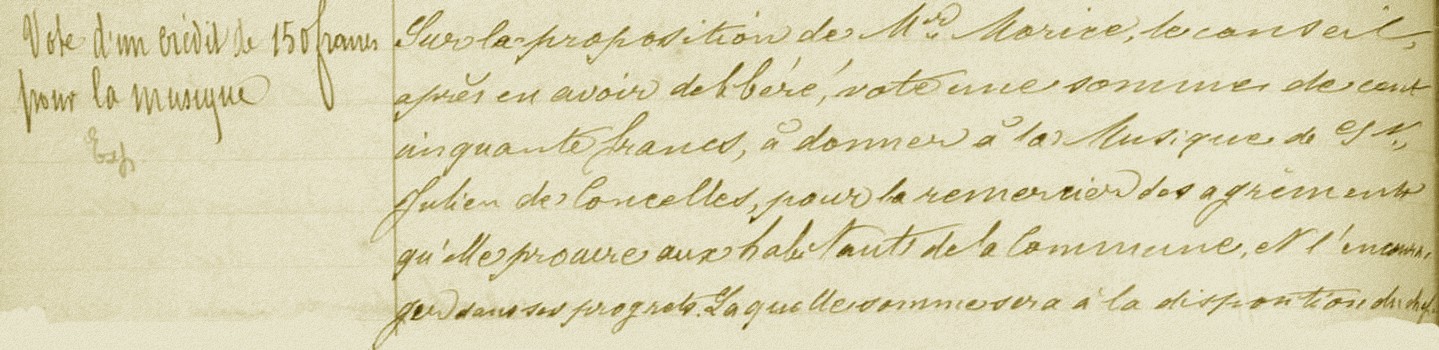 Vote d'un crédit de 150 francs
pour la musique
Exp.
Sur la proposition de Mr. Morice, le conseil,
après en avoir délibéré, vote une somme de cent
cinquante francs, à donner à la Musique de St.
Julien de Concelles, pour la remercier des agréments
qu'elle procure aux habitants de la Commune, et l'encoura-
ger dans ses progrès. Laquelle somme sera à la disposition du chef